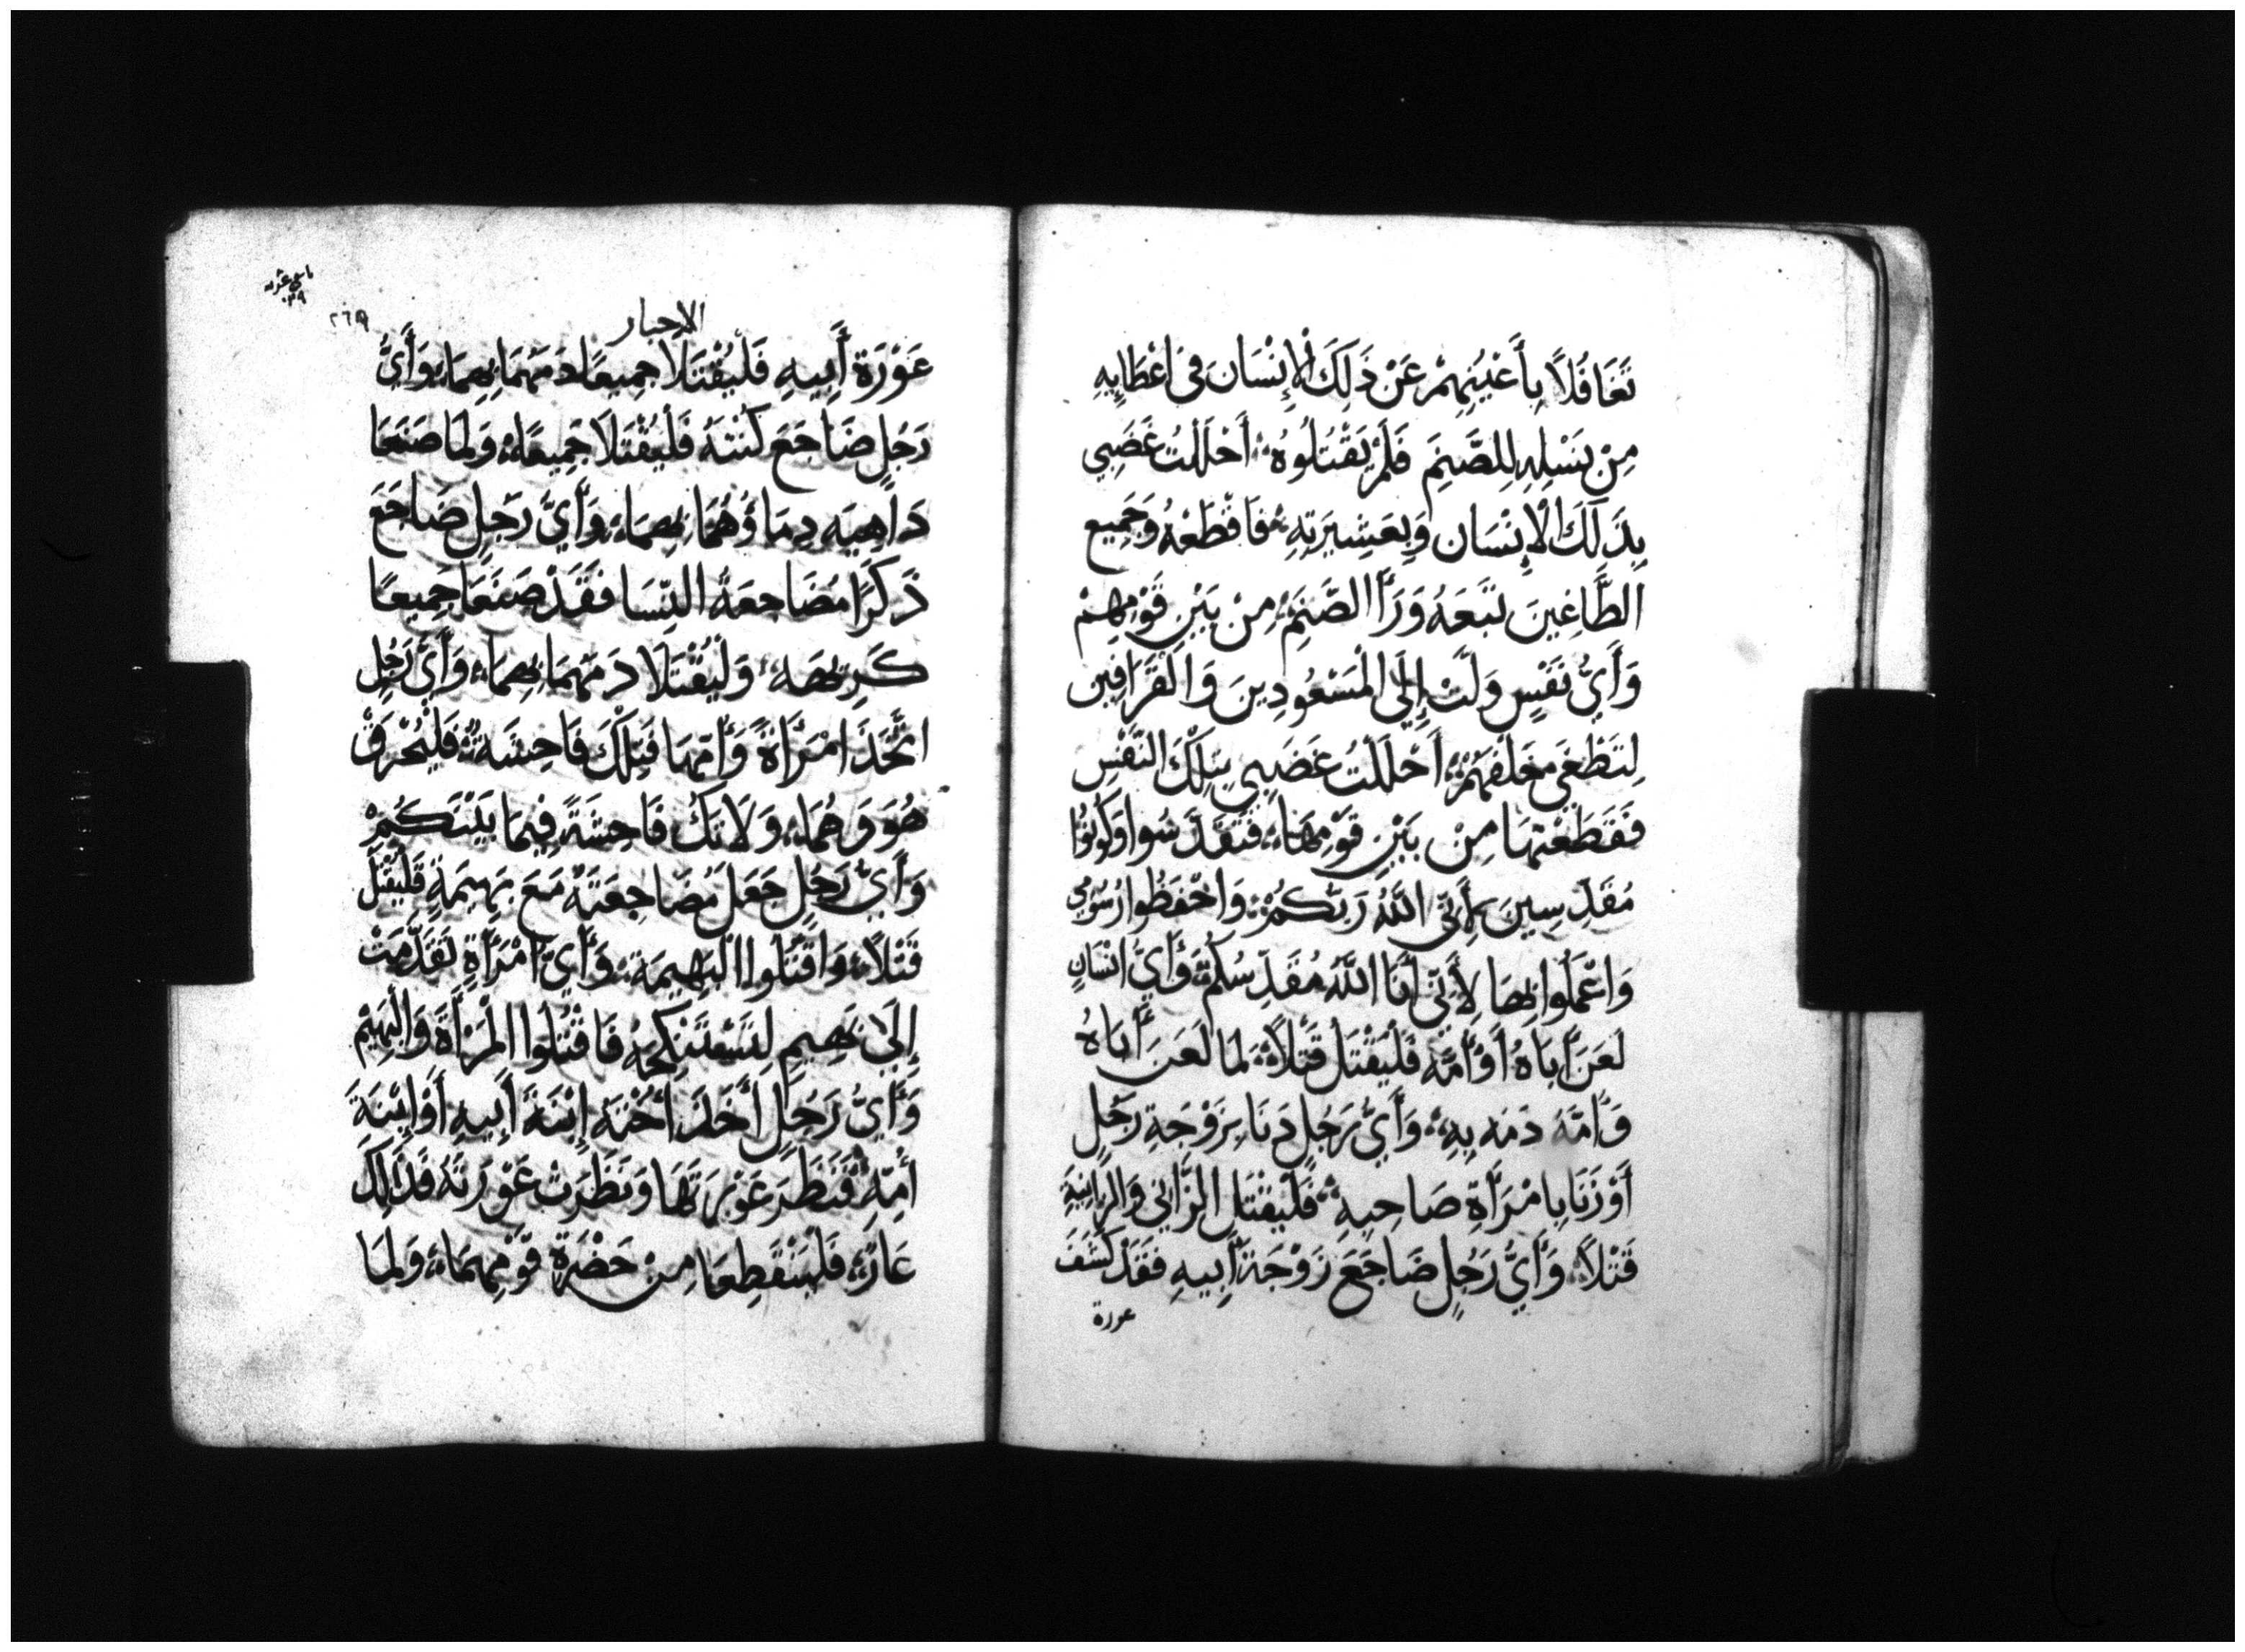 تَغَافُلاً بِأَعْيُنِهِمْ عَنْ ذَلِكَ الْإِنْسَانَ فِى اعْطَايِهِ
مِنْ نَسْلِهِ لِلصَّنَمِ فَلَمْ يَقْتُلُوهُ أَحْلَلْتُ غَضَبِي
بِذَلِكَ الْإِنْسَانِ وَبِعَشِيرَتِهِ فَاقْطَعْهُ وَجَمِيع
الطَّاغِينَ تَبَعَهُ وَرَأَ الصَّنَمِ مِنْ بَيْنِ قَوْمِهِمْ
وَأَيُّ نَفْسٍ وَلَّتْ إِلَى الْمَسْعُودِينَ وَالْقَرَّافِين
لِتَطْغَى خَلْفَهُمْ أَحْلَلْتُ غَضَبِي بِتِلْكَ النَّفْسِ
فَقَطَعْتُهَا مِنْ بَيْنِ قَوْمِهَا فَتَقَدَّسُوا وَكُونُوا
مُقَدَّسِينَ لِأَنِّى اللَّهُ رَبُّكُمْ وَاحْفَظُوا رُسُومِي
وَاعْمَلُوا بِهَا لِأَنِّى أَنَا اللَّهُ مُقَدِّسُكُمْ وَأَيُّ انْسَانٍ
لَعَنَ أَبَاهُ أَوْ أُمَّهُ فَلْيُقْتَلْ قَتْلاً لَمَا لَعَنَ أَبَاهُ
وَأُمَّهُ دَمَه بِهِ وَأَيُّ رَجُلٍ دَنَا بِزَوْجَةِ رَجُلٍ
أَوْ زَنَا بِامْرَأَةِ صَاحِبِهِ فَلْيُقْتَلِ الزَّانِي وَالزَّانِيَةِ
قَتْلاً وَأَيُّ رَجُلٍ ضَاجَعَ زَوْجَةَ أَبِيهِ فَقَدْ كَشَفَ
عورة
الاحبار
٢٦٩
عَوْرَةَ أَبِيهِ فَلْيُقْتَلَا جَمِيعًا دَمَهُمَا بِهِمَا وَأَيُّ
رَجُلٍ ضَاجَعَ كَنَّتَهُ فَلْيُقْتَلَا جَمِيعًا وَلِمَا صَنَعَا
دَاهِيَه دِمَاؤُهُمَا بِهِمَا وَأَيُّ رَجُلٍ ضَاجَعَ
ذَكَرًا مُضَاجَعَةَ النِّسَا فَقَدْ صَنَعَا جَمِيعًا
كَرِيهَه وَلْيُقْتَلَا دَمَهُمَا بِهِمَا وَأَيُّ رَجُلٍ
اتَّخَذَ امْرَأَةً وَأُمَّهَا فَتِلْكَ فَاحِشَةٌ فَلْيُحْرَقْ
هُوَ وَهُمَا وَلَا تَكُ فَاحِشَةً فِيمَا بَيْنَكُمْ
وَأَيُّ رَجُلٍ جَعَلَ مُضَاجِعَتَهُ مَعَ بَهِيمَةٍ فَلْيُقْتَلْ
قَتْلاً وَاقْتُلُوا الْبَهِيمَةَ وَأَيُّ امْرَأَةٍ تَقَدَّمَتْ
إِلَى بَهِيمٍ لِتَسْتَنْكِحَهُ فَاقْتُلُوا الْمَرْأَةَ وَالْبَهِيْمِ
وَأَيُّ رَجُلٍ أَخَذَ أُخْتَهُ إِبْنَةَ أَبِيهِ أَوْ إِبْنَةَ
أُمِّهِ فَنَظَرَ عَوْرَتَهَا وَنَظَرَتْ عَوْرَتَهُ فَذَلِكَ
عَارٌ فَلْيَنْقَطِعَا مِنْ حَضْرَةِ قَوْمِهِمَا وَلِمَا